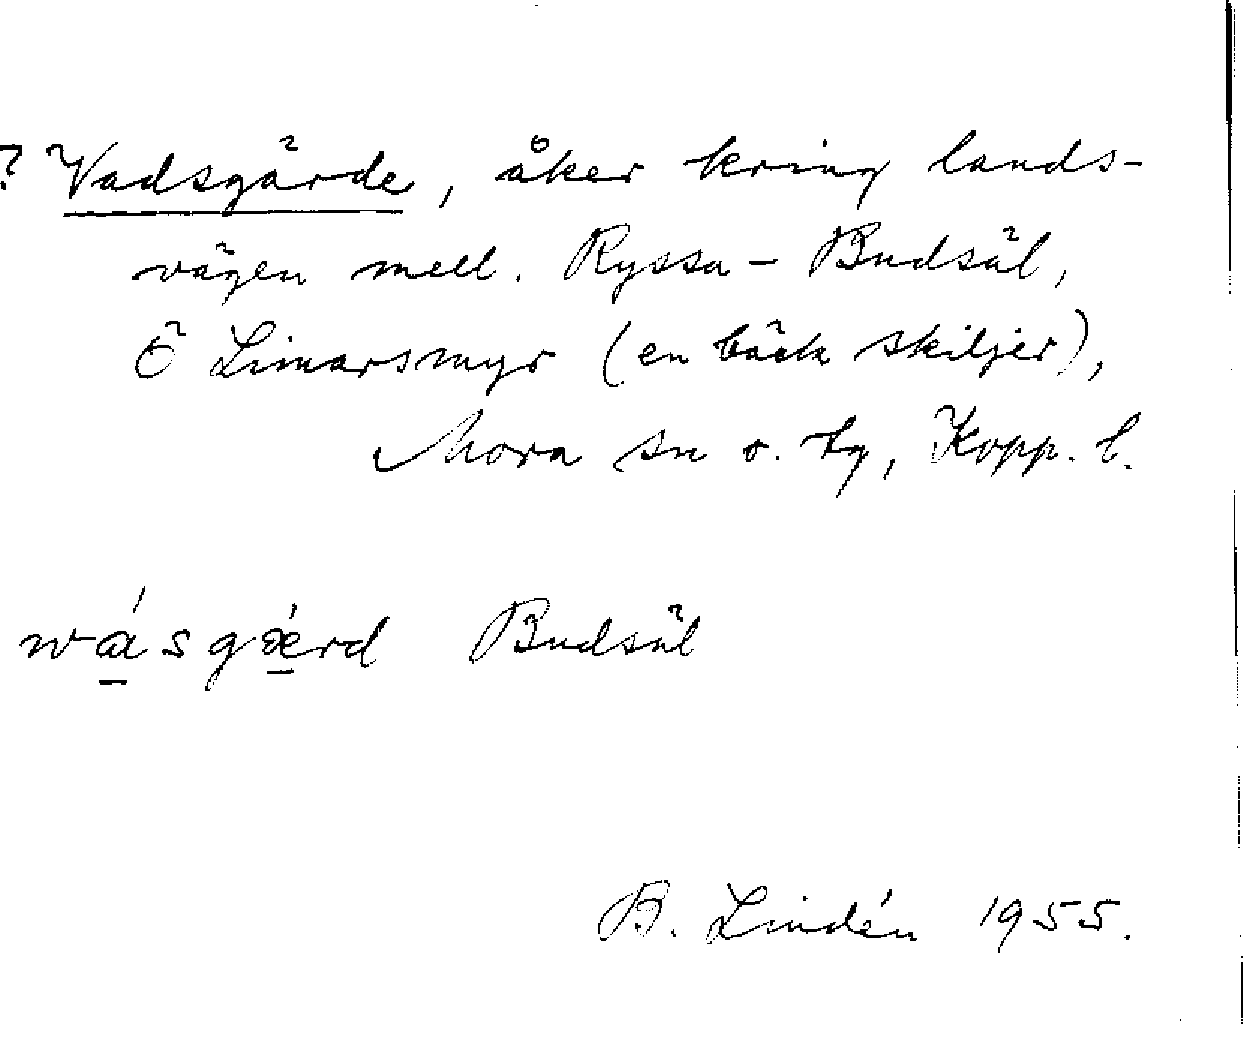 ? Vadsgärde, åker kring lands-
vägen mell. Ryssa - Budsäl,
Ö Limarsmyr (en bäck skiljer),
Mora sn o. tg, Kopp. l.
wásgǽrd Budsäl
B. Lindén 1955.